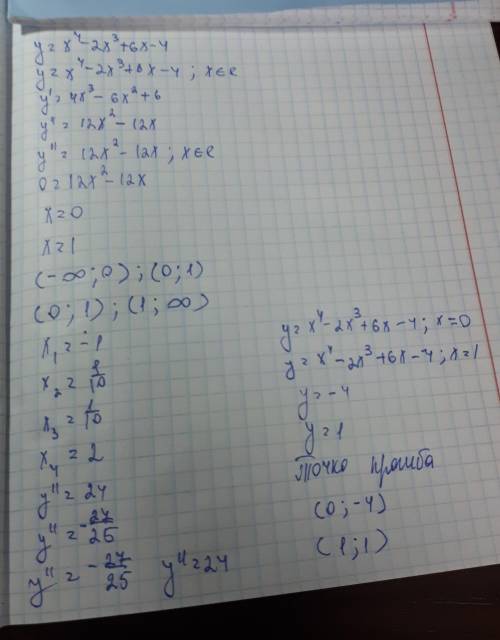 y = x⁴ - 2x³ + 6x - 4
y = x⁴ - 2x³ + 6x - 4 ; x∈R
y' = 4x³ - 6x² + 6
y'' = 12x² - 12x
y'' = 12x² - 12x ; x∈R
0 = 12x² - 12x
x = 0
x = 1
(-∞; 0) ; (0; 1)
(0; 1) ; (1; ∞)
x₁ = -1
x₂ = 1/10
x₃ = 1/10
x₄ = 2
y'' = 24
y'' = -27/25
y'' = -27/25 y'' = 24
y = x⁴ - 2x³ + 6x - 4 ; x = 0
y = x⁴ - 2x³ + 6x - 4 ; x = 1
y = -4
y = 1
Точка
(0; -4)
(1; 1)